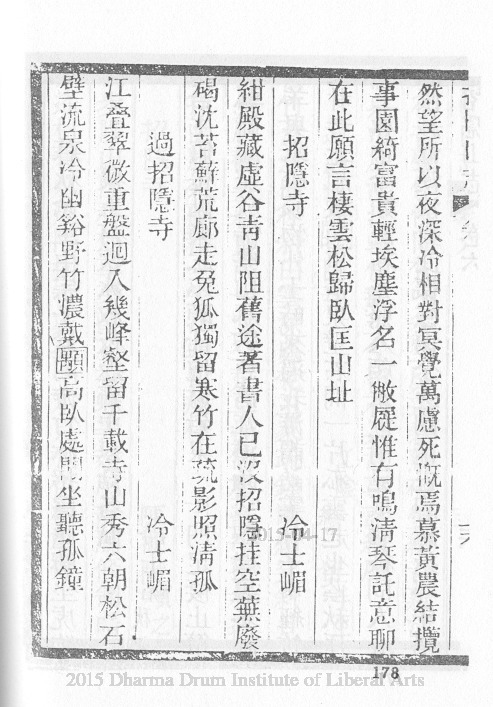 然望所以夜深冷相對冥覺萬慮死慨焉慕黃農結攬
事園綺富貴輕埃塵浮名一敝屣惟有鳴清琴託意聊
在此願言棲雲松歸臥匡山址
招隱寺 冷士嵋
紺殿藏虛谷靑山阻舊途著書人已沒招隱挂空蕪廢
碣沈苔蘚荒廊走兔狐獨留寒竹在疏影照淸孤
過招隱寺 冷士嵋
江叠翠微重盤迴入幾峰壑留千載寺山秀六朝松石
壁流泉冷幽谿野竹濃戴顒高臥處閒坐聽孤鐘
178
2015-04-17
2015 Dharma Drum Institute of Liberal Arts